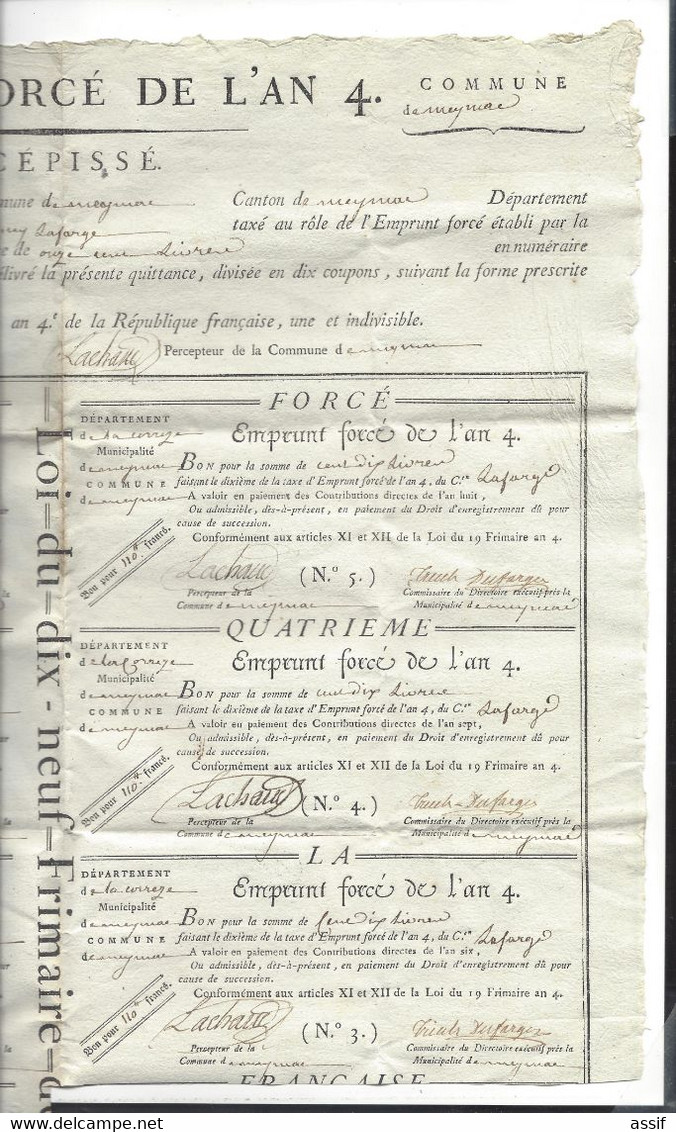 ORCÉ DE L'AN 4.
COMMUNE
de meymac
CÉPISSÉ.
mune de meymac Canton de meymac Département
Lafarge taxé au rôle de l'Emprunt forcé établi par la
de onze cent Livres en numéraire
élivré la présente quittance, divisée en dix coupons, suivant la forme prescrite
an 4.e de la République française, une et indivisible.
Lachaud Percepteur de la Commune de meymac
Loi=du=dix-neuf=Frimaire=d
FORCÉ
DÉPARTEMENT
de la Correze
Municipalité
de meymac
COMMUNE
de meymac
Emprunt forcé de l'an 4.
BON pour la somme de cent dix Livres
faisant le dixième de la taxe d'Emprunt forcé de l'an 4, du C.en Lafarge
A valoir en paiement des Contributions directes de l'an huit,
Ou admissible, dès-à-présent, en paiement du Droit d'enregistrement dû pour
cause de succession.
Conformément aux articles XI et XII de la Loi du 19 Frimaire an 4.
Bon pour 110 francs.
Lachaud (N.o 5.)
Percepteur de la
Commune de meymac
Commissaire du Directoire exécutif près la
Municipalité de meymac
QUATRIEME
DÉPARTEMENT
de la Correze
Municipalité
de meymac
COMMUNE
de meymac
Emprunt forcé de l'an 4.
BON pour la somme de cent dix Livres
faisant le dixième de la taxe d'Emprunt forcé de l'an 4, du C.en Lafarge
A valoir en paiement des Contributions directes de l'an sept,
Ou admissible, dès-à-présent, en paiement du Droit d'enregistrement dû pour
cause de succession.
Conformément aux articles XI et XII de la Loi du 19 Frimaire an 4.
Bon pour 110 francs.
Lachaud (N.o 4.)
Percepteur de la
Commune de meymac
Commissaire du Directoire exécutif près la
Municipalité de meymac
LA
DÉPARTEMENT
de la Correze
Municipalité
de meymac
COMMUNE
de meymac
Emprunt forcé de l'an 4.
BON pour la somme de Cent dix Livres
faisant le dixième de la taxe d'Emprunt forcé de l'an 4, du C.en Lafarge
A valoir en paiement des Contributions directes de l'an six,
Ou admissible, dès-à-présent, en paiement du Droit d'enregistrement dû pour
cause de succession.
Conformément aux articles XI et XII de la Loi du 19 Frimaire an 4.
Bon pour 110 francs.
Lachaud (N.o 3.)
Percepteur de la
Commune de meymac
Commissaire du Directoire exécutif près la
Municipalité de meymac
FRANÇAISE
assif